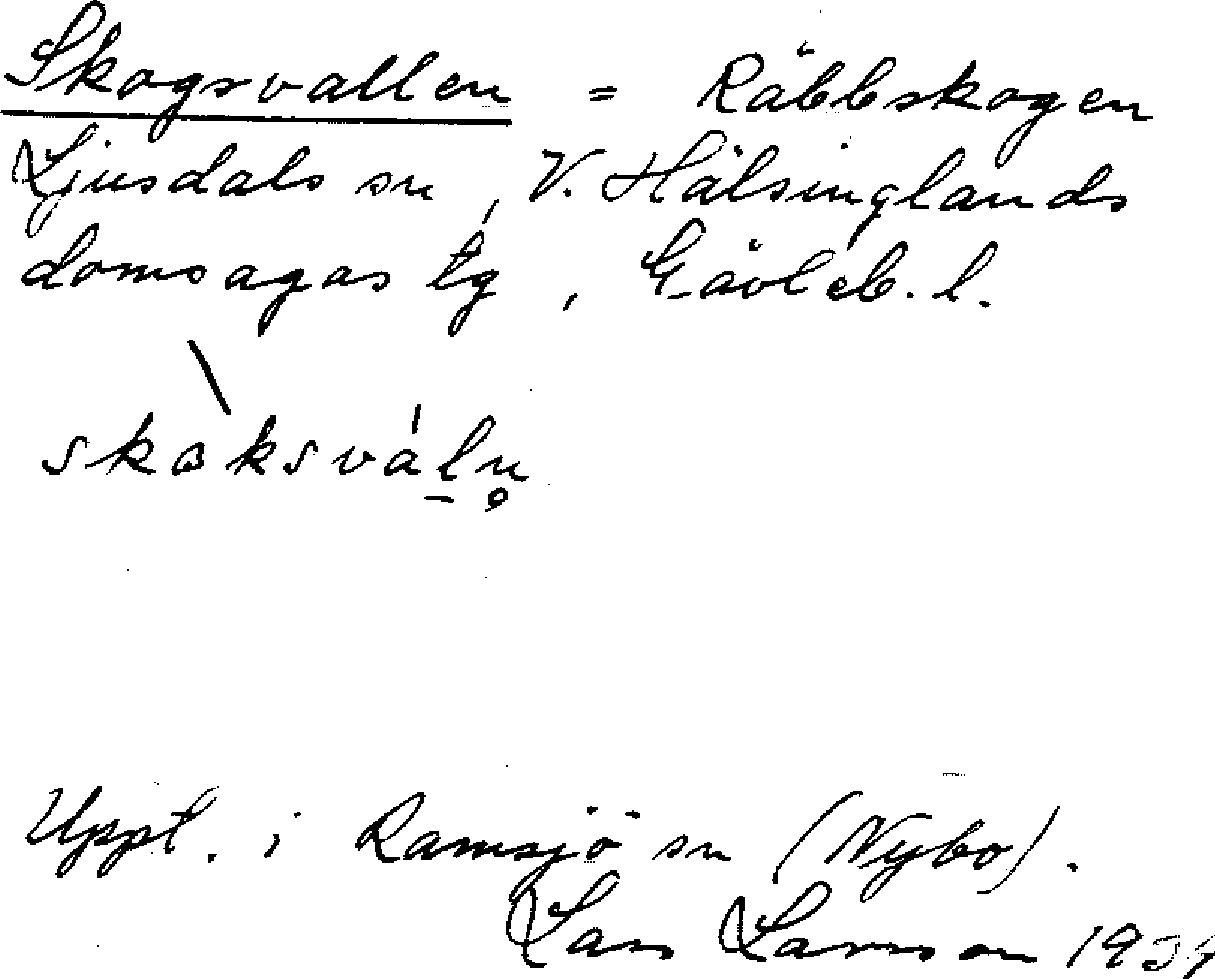 Skogsvallen = Räbbskogen
Ljusdals sn, V. Hälsinglands
domsagas tg, Gävleb. l.
skɷksváln̥
Uppt. i Ramsjö sn (Nybo).
Lars Larsson